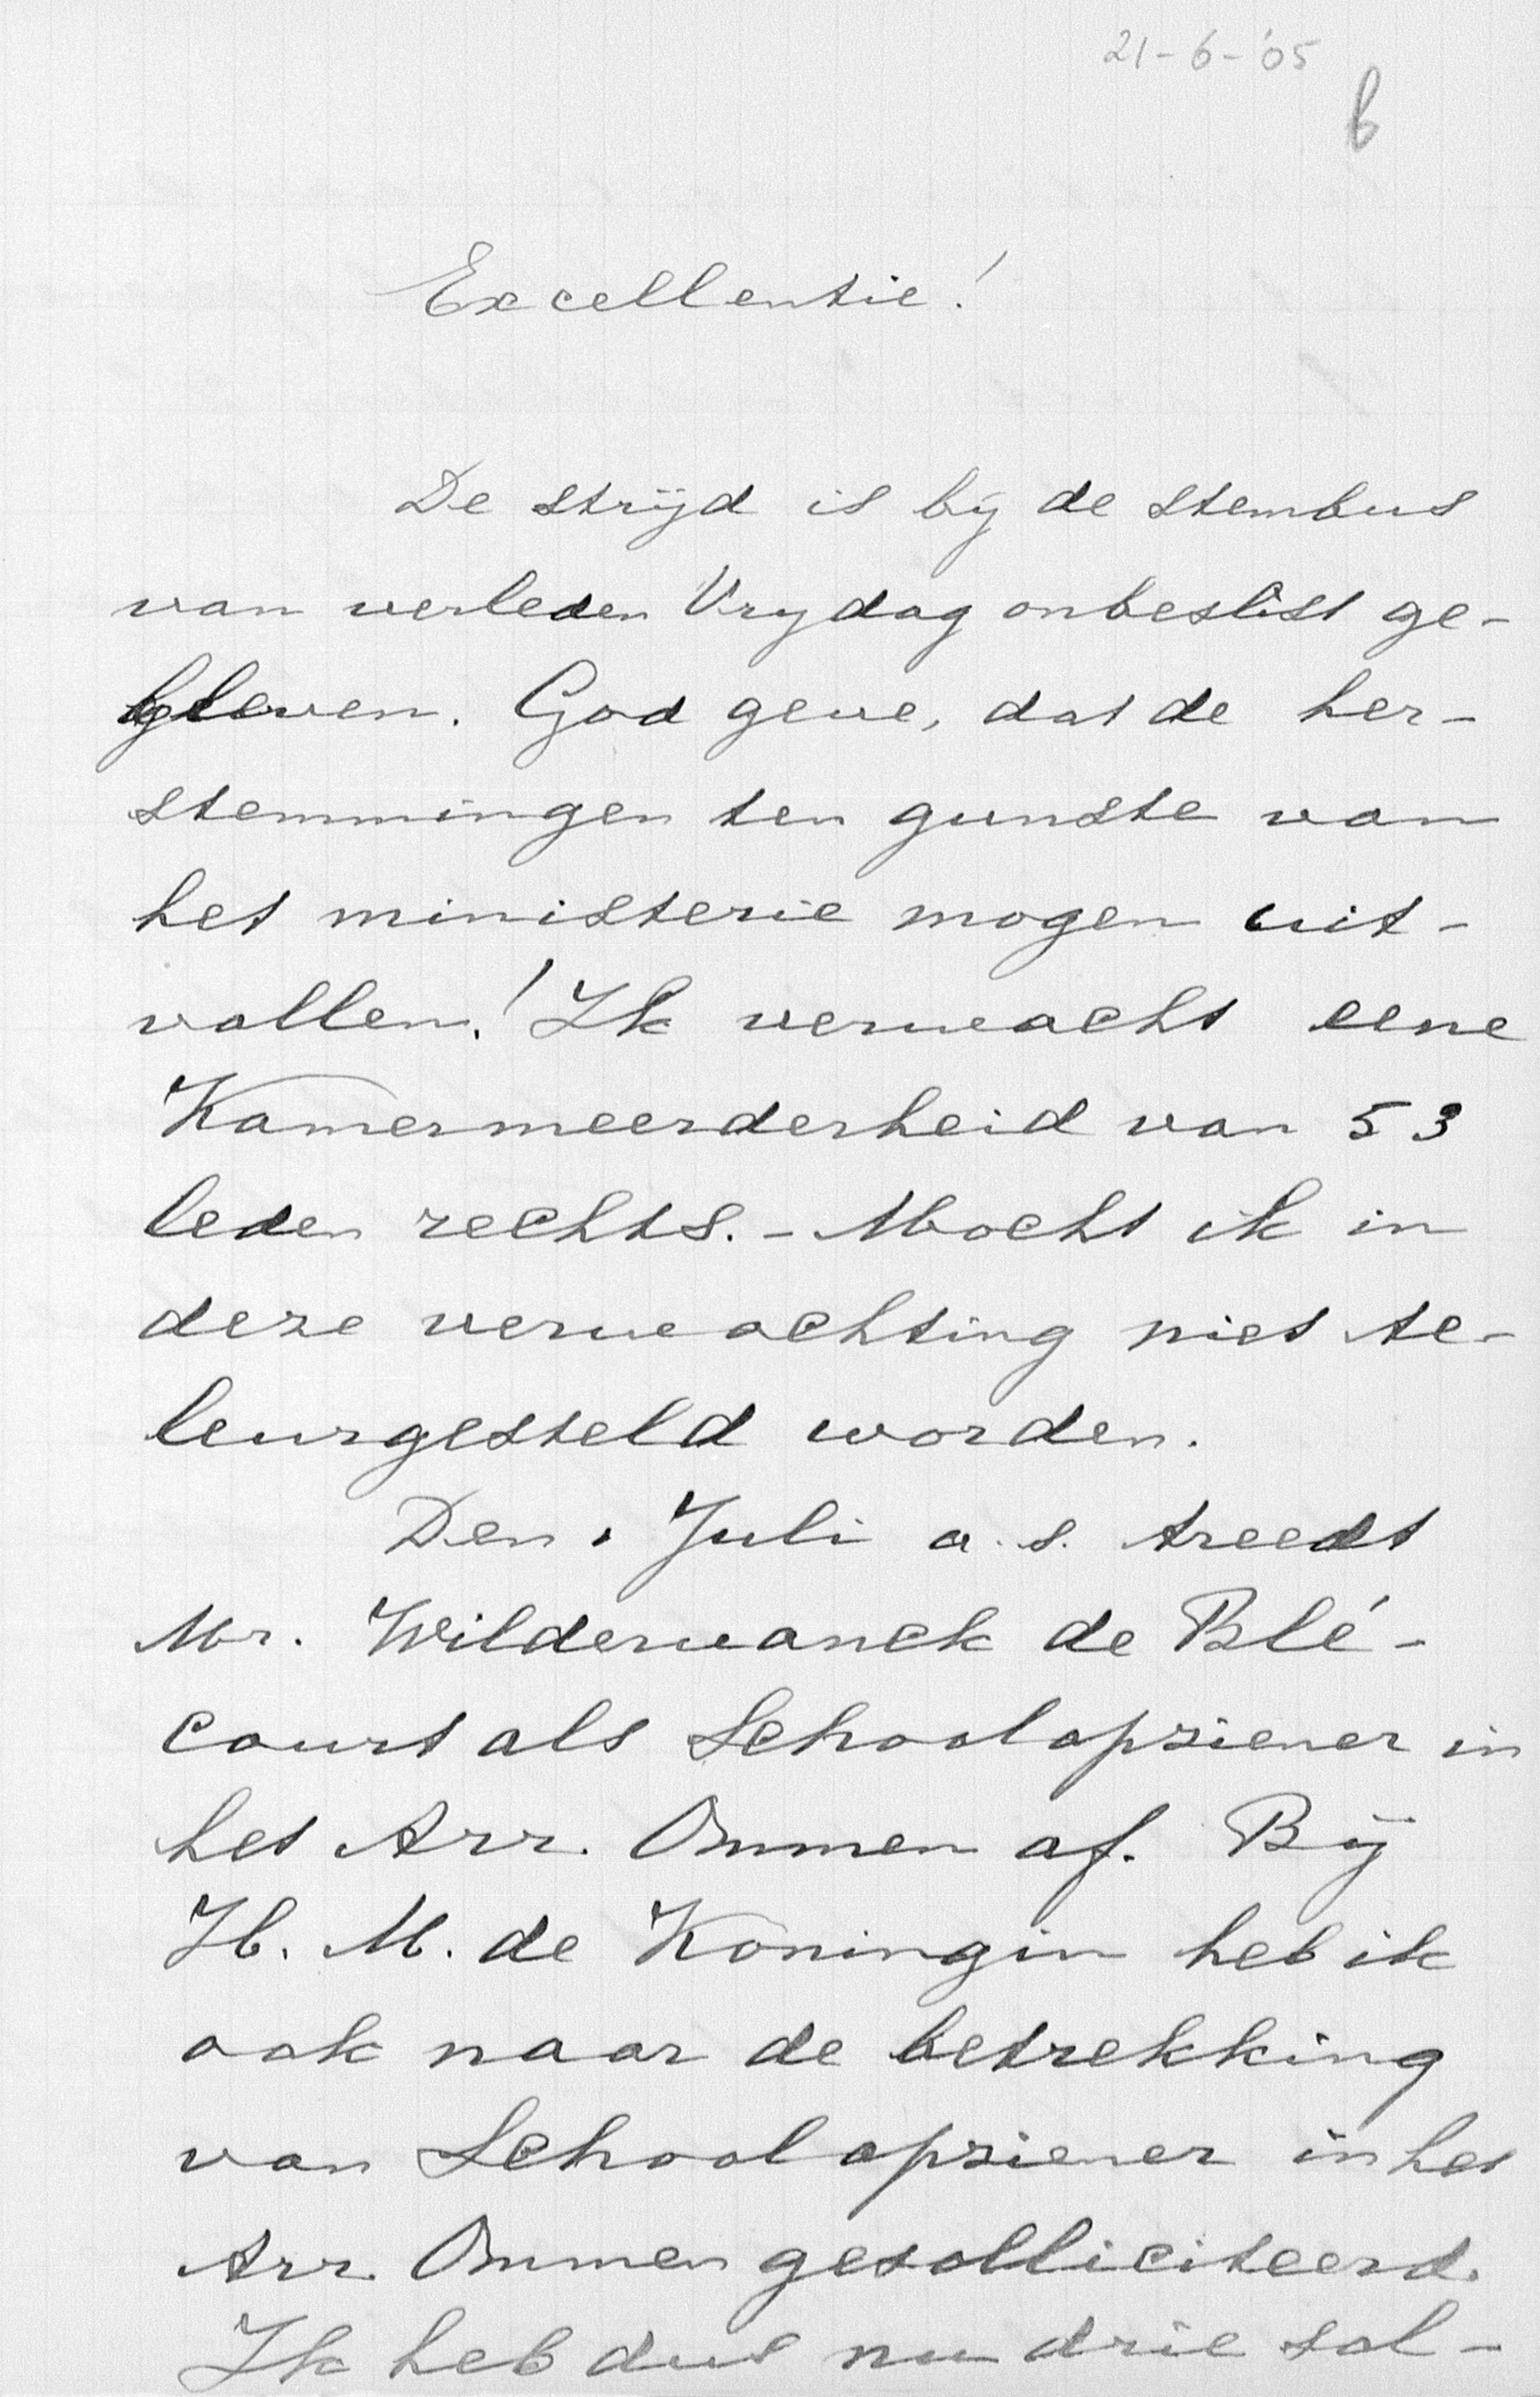 21-6-'05
b
Excellentie!
De strijd is bij de stembus
van verleden Vrijdag onbeslist ge-
bleven. God geve, dat de her-
stemmingen ten gunste van
het ministerie mogen uit-
vallen! Ik verwacht eene
Kamermeerderheid van 53
leden rechts. - Mocht ik in
deze verwachting niet te-
leurgesteld worden.
Den 1 Juli a.s. treedt
Mr. Wildervanck de Blé-
court als Schoolopziener in
het Arr. Ommen af. Bij
H. M. de Koningin heb ik
ook naar de betrekking
van Schoolopziener in het
Arr. Ommen gesolliciteerd.
Ik heb dus nu drie sol-